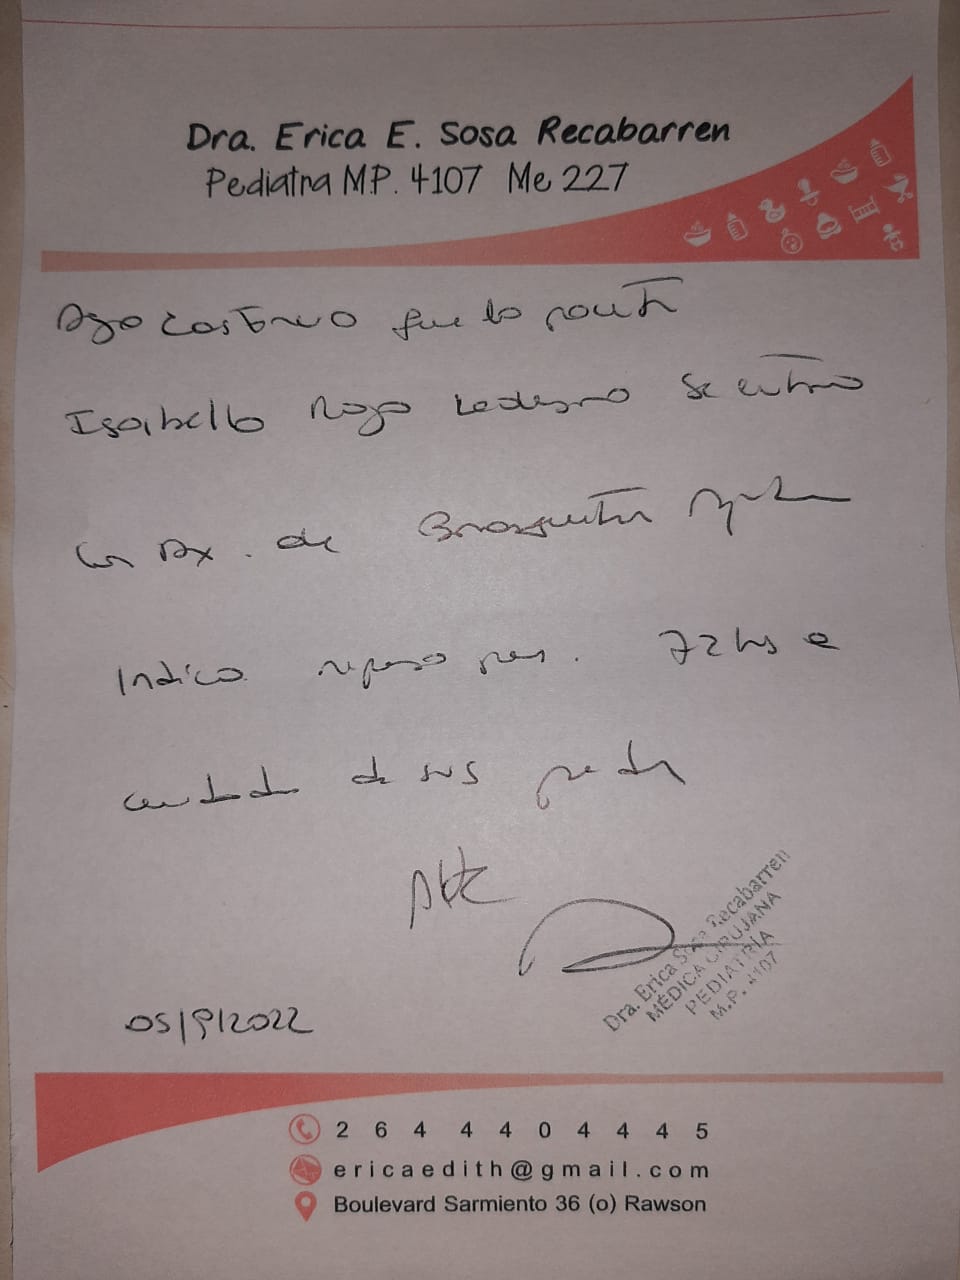 Dra. Erica E. Sosa Recabarren
Pediatria M.P. 4107 Me 227
Dejo constancia que la paciente
Isabella Rojo Ledesma se encuentra
con Dx. de
Indico reposo por 72 hs e
cuidado de sus padres
Atte
Dra. Erica Sosa Recabarren
MÉDICA CIRUJANA
PEDIATRÍA
M.P. 4107
05/9/2022
2644404445
ericaedith@gmail.com
Boulevard Sarmiento 36 (o) Rawson